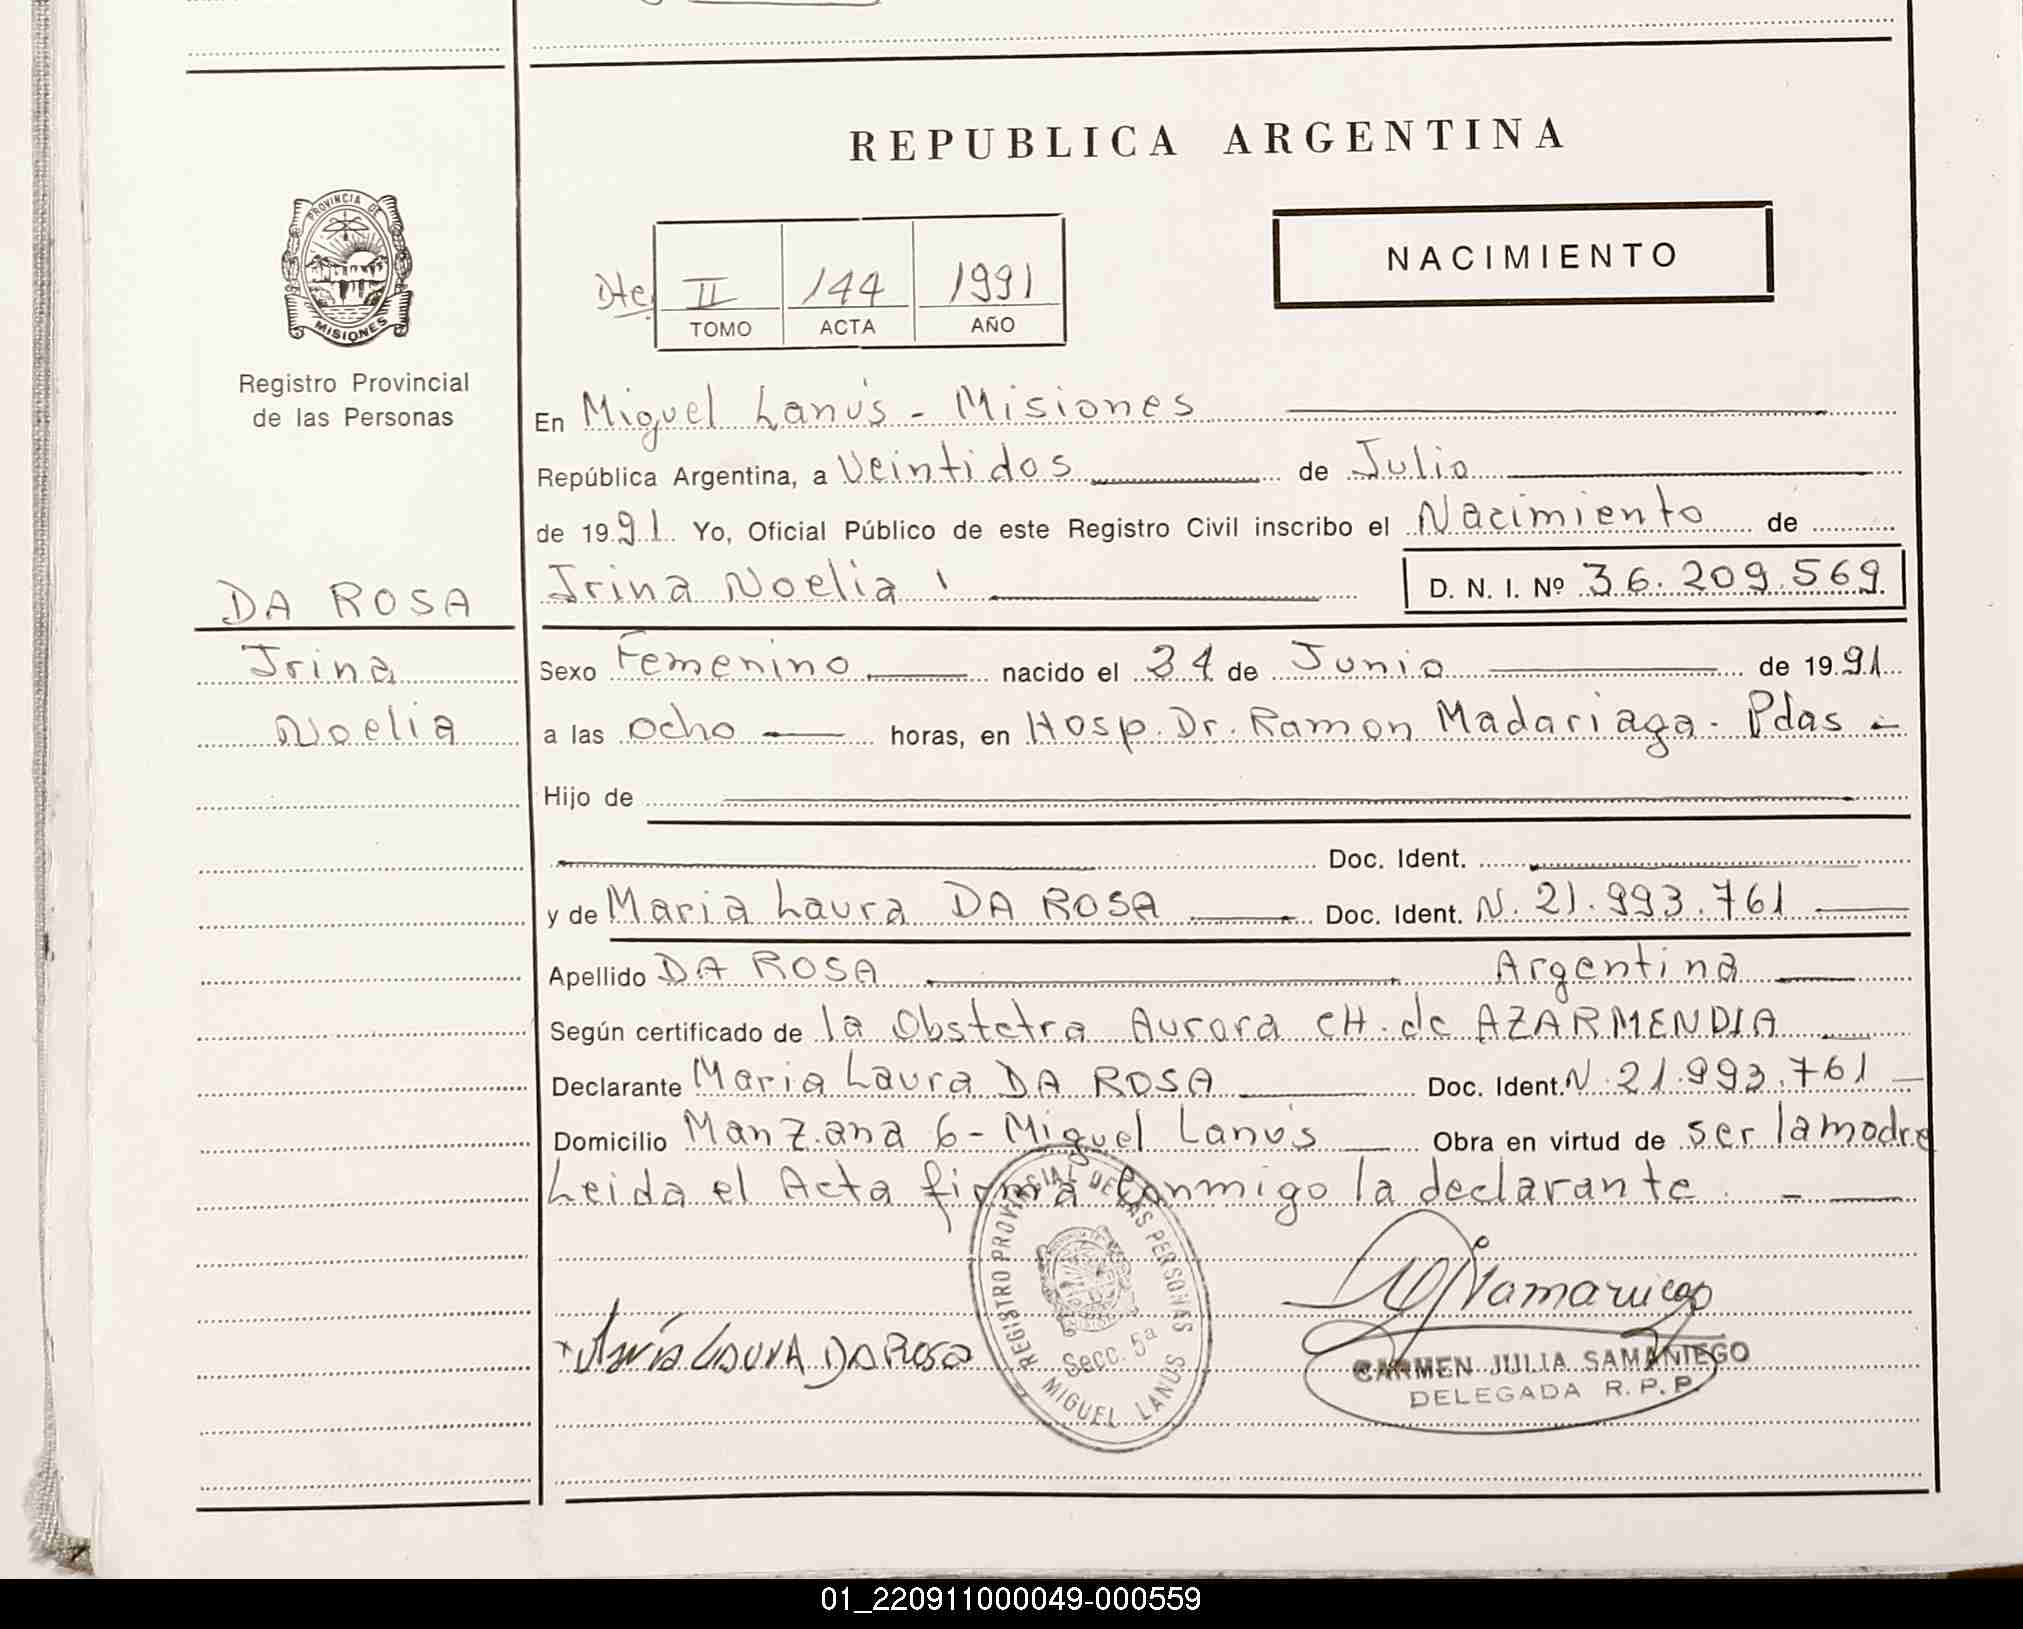 REPUBLICA ARGENTINA
PROVINCIA DE
MISIONES
Registro Provincial
de las Personas
Dte.
II
144
1991
TOMO
ACTA
AÑO
NACIMIENTO
En Miguel Lanús - Misiones
República Argentina, a Veintidos de Julio
de 1991 Yo, Oficial Público de este Registro Civil inscribo el Nacimiento de
DA ROSA
Irina Noelia
D. N. I. Nº 36.209.569
Irina
Sexo Femenino nacido el 24 de Junio de 1991
Noelia
a las ocho horas, en Hosp. Dr. Ramon Madariaga - Pdas -
Hijo de
Doc. Ident.
y de Maria Laura DA ROSA Doc. Ident. N. 21.993.761
Apellido DA ROSA Argentina
Según certificado de la Obstetra Aurora CH. de AZARMENDIA
Declarante Maria Laura DA ROSA Doc. Ident. N. 21.993.761
Domicilio Manzana 6 - Miguel Lanús Obra en virtud de ser la madre
Leida el Acta firma Conmigo la declarante. -
REGISTRO PROVINCIAL DE LAS PERSONAS
Secc. 5ª
MIGUEL LANUS
María LAURA DA ROSA
CARMEN JULIA SAMANIEGO
DELEGADA R.P.P.
01_220911000049-000559